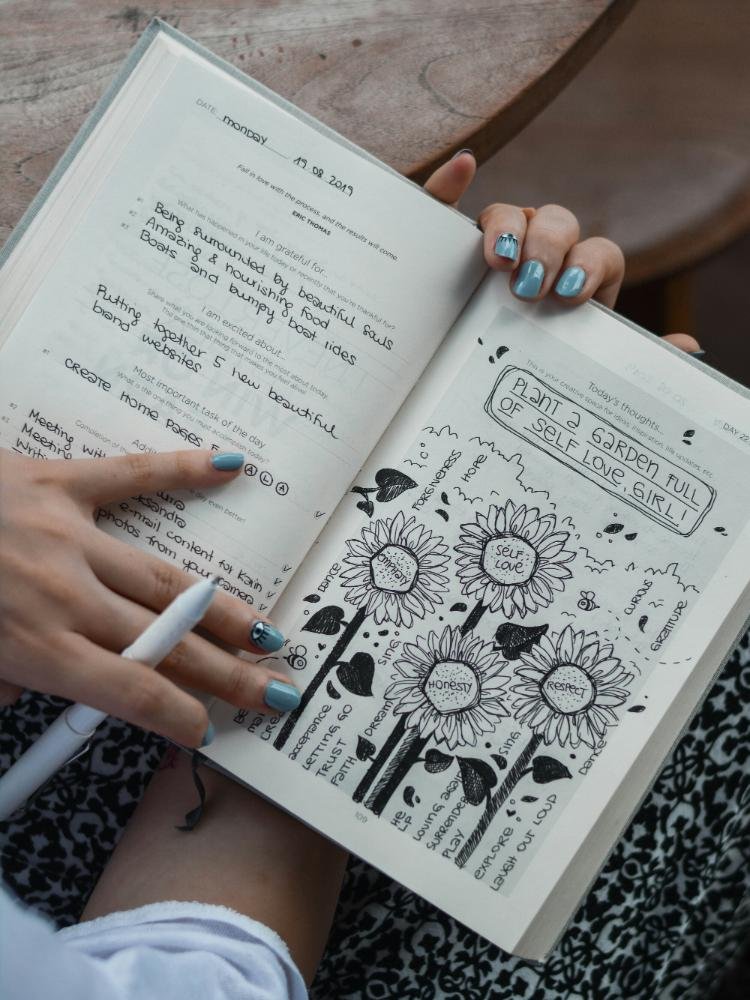 DATE monday 19 08 2019
Fall in love with the process, and the results will come.
ERIC THOMAS
I am grateful for...
What has happened in your life today or recently that you're thankful for?
#1 Being surrounded by beautiful souls
#2 Amazing & nourishing food
#3 Boats and bumpy boat rides
I am excited about...
Share what you are looking forward to the most about today.
The one thing that thing that makes you feel alive!
Putting together 5 new beautiful
brand websites
Most important task of the day
What is the one thing you must accomplish today?
#1 create home pages F
A L A
Meeting with
Meeting
e-mail content for Karin
photos from your camera
day even better!
DAY 22
Today's thoughts...
This is your creative space for ideas, inspiration, life updates, etc.
PLANT a GARDEN FULL
OF SELF LOVE, GIRL!
FORGIVENESS
HOPE
SELF
LOVE
HONESTY
RESPECT
CURIOUS
GRATITUDE
DANCE
SING
DREAM
acceptance
LETTING GO
TRUST
FAITH
SING
DANCE
LOVING again
SURRENDER
PLAY
EXPLORE
LAUGH OUT LOUD
109